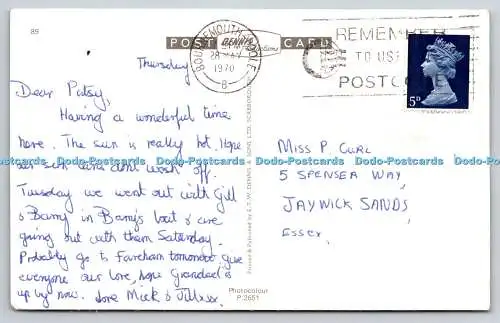 89
POST CARD
DENNIS
Productions
BOURNEMOUTH POOLE
28 MAY
1970
B
REMEMBER
TO USE
POSTCODE
5D
Thursday
Dear Patsy,
Having a wonderful time
here. The sun is really hot. Hope
our sun tans dont wash off.
Tuesday we went out with Gill
& Barry in Barry's boat & are
going out with them Saturday.
Probably go to Fareham tomorrow give
everyone our love, hope Grandad is
up by now. Love Mick & Jill xxx
MISS P. CURL
5 SPENSER WAY,
JAYWICK SANDS,
ESSEX.
Printed & Published by E.T.W. DENNIS & SONS LTD. SCARBOROUGH
Photocolour
P.2651
Dodo-Postcards Dodo-Postcards Dodo-Postcards Dodo-Postcards Dodo-Postcards